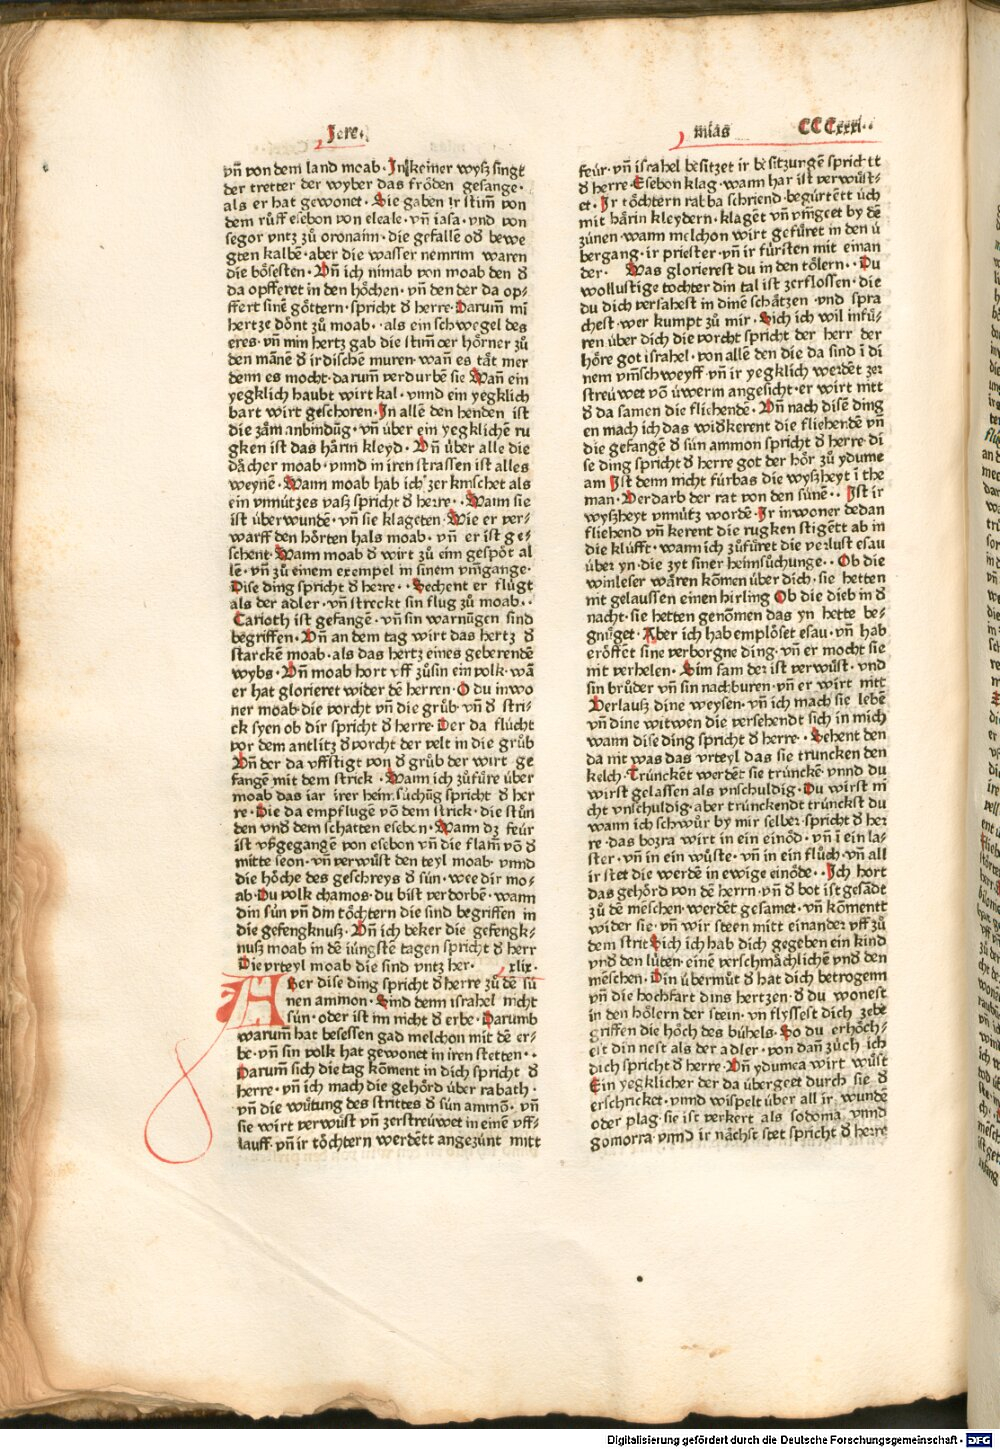 Jere·
vn̄ von dem land moab· In keiner wysz singt
der tretter der wyber das fröden gesange·
als er hat gewonet· Sie gaben ir stim̄ von
dem růff esebon von eleale· vn̄ iasa· vnd von
segor vntz zů oronaim· die gefallē od̄ bewe
gten kalbe· aber die wasser nemrim waren
die bösesten· Vn̄ ich nimab von moab den d̄
da opfferet in den höchen· vn̄ den der da op⸗
ffert sinē göttern· spricht d̄ herre· Darum̄ mī
hertze dönt zů moab· als ein schwegel des
eres· vn̄ min hertz gab die stum̄ oer hörner zů
den mānē d̄ irdischē muren· wan̄ es tät mer
denn es mocht· darum̄ verdurbē sie Wan̄ ein
yegklich haubt wirt kal· vnnd ein yegklich
bart wirt geschoren· In allē den henden ist
die zām anbindūg· vn̄ über ein yegklichē ru
gken ist das härin kleyd· Vn̄ über alle die
dächer moab· vnnd in iren strassen ist alles
weynē· Wann moab hab ich zerknischet als
ein vnnützes vasz spricht d̄ herre· Wann sie
ist überwundē· vn̄ sie klageten· Wie er ver⸗
warff den hörten hals moab· vn̄ er ist ge⸗
schent· Wann moab d̄ wirt zů einn gespöt al
lē· vn̄ zů einem exempel in sinem vm̄gange·
Dise ding spricht d̄ herre· Sechent er flügt
als der adler· vn̄ streckt sin flug zů moab·
Carioth ist gefangē· vn̄ sin warnūgen sind
begriffen· Vn̄ an dem tag wirt das hertz d̄
starckē moab· als das hertz eines geberendē
wybs· Vn̄ moab hort vff zůsin ein volk· wā
er hat glorieret wider dē herren· O du inwo
ner moab die vorcht vn̄ die grůb· vn̄ d̄ stri⸗
ck syen ob dir spricht d̄ herre· Der da flücht
vor dem antlitz d̄ vorcht der velt in die grůb
Vn̄ der da vffstigt von d̄ grůb der wirt ge
fangē mit dem strick· Wann ich zůfüre über
moab das iar irer heim süchūg spricht d̄ her
re· Die da empflugē vō dem strick· die stůn
den vnd dem schatten esebon· Wann dz feür
ist vßgegangē von esebon vn̄ die flam̄ vō d̄
mitte seon· vn̄ verwüst den teyl moab· vnnd
die höche des geschreys d̄ sün· wee dir mo⸗
ab· Du volk chamos· du bist verdorbē· wann
din sün vn̄ din töchtern die sind begriffen in
die gefengknusz· Vn̄ ich beker die gefengk⸗
nusz moab in dē iüngstē tagen spricht d̄ herr
Die vrteyl moab die sind vntz her· xlix·
Aber dise ding spricht d̄ herre zů dē sü
nen ammon· Sind denn israhel nicht
sün· oder ist im nicht d̄ erbe· Darumb
warum̄ hat besessen gad melchon mit dē er⸗
be· vn̄ sin volk hat gewonet in iren stetten·
Darum̄ sich die tag kōment in dich spricht d̄
herre· vn̄ ich mach die gehörd über rabath·
vn̄ die wütung des strittes d̄ sün ammō· vn̄
sie wirt verwüst vn̄ zerstreüwet in einē vff⸗
lauff· vn̄ ir töchtern werdētt angezünt mitt
mias CCCxxxi·
feür· vn̄ israhel besitzet ir besitzungē spricht
d̄ herre· Esebon klag· wann har ist verwüst⸗
et· Ir töchtern rabba schriend· begürtētt üch
mit härin kleydern· klagēt vn̄ vm̄geet by dē
zünen· wann melchon wirt gefüret in den ü
bergang· ir priester vn̄ ir fürsten mit einan
der· Was glorierest du in den tölern· Du
wollustige tochter din tal ist zerflossen· die
du dich versahest in dinē schätzen· vnd spra
chest· wer kumpt zů mir· Sich ich wil infü⸗
ren über dich die vorcht spricht der herr der
höre got israhel· von allē den die da sind ī di
nem vm̄schweyff· vn̄ ir yegklich werdēt zer
streüwet vō üwerm angesicht· er wirt nitt
d̄ da samen die fliehendē· Vn̄ nach disē ding
en mach ich das widkerent die fliehendē vn̄
die gefangē d̄ sün ammon spricht d̄ herre· di
se ding spricht d̄ herre got der hör zů ydume
am Ist denn nicht fürbas die wyszheyt ī the
man· Verdarb der rat von den sünē· Ist ir
wyszheyt vnnütz wordē· Ir inwoner dedan
fliehend vn̄ kerent die rugken stigētt ab in
die klüfft· wann ich zůfüret die verlust esau
über yn· die zyt siner heimsůchunge· Ob die
winleser wären kōmen über dich· sie hetten
nit gelaussen einen hirling Ob die dieb in d̄
nacht· sie hetten genōmen das yn hette be⸗
gnüget· Aber ich hab emplöset esau· vn̄ hab
eröffēt sine verborgne ding· vn̄ er mocht sie
nit verhelen· Sim sam der ist verwüst· vnd
sin brüder vn̄ sin nachburen· vn̄ er wirt nitt
Verlausz dine weysen· vn̄ ich mach sie lebē
vn̄ dine witwen die versehendt sich in mich
wann dise ding spricht d̄ herre· Sehent den
da nit was das vrteyl das sie truncken den
kelch· Trünckēt werdēt sie trünckē· vnnd du
wirst gelassen als vnschuldig· Du wirst ni
cht vnschuldig· aber trünckendt trünckst du
wann ich schwůr by mir selber· spricht d̄ her
re· das bozra wirt in ein einōd· vn̄ ī ein la⸗
ster· vn̄ in ein wůste· vn̄ in ein flůch· vn̄ all
ir stet die werdē in ewige einöde· Ich hort
das gehörd von dē herrn· vn̄ d̄ bot ist gesādt
zů dē mēschen· werdēt gesamet· vn̄ kōmentt
wider sie· vn̄ wir steen mitt einander vff zů
dem strit· Sich ich hab dich gegeben ein kind
vnd den lüten· einē verschmächlichē vnd den
mēschen· Din übermůt d̄ hat dich betrogenn
vn̄ die hochfart dins hertzen· d̄ du wonest
in den hölern der stein· vn flyssest dich zebe
griffen die höch des bühels· So du erhöch⸗
est din nest als der adler· von dan̄ zůch ich
dich spricht d̄ herre· Vn̄ ydumea wirt wüst
Ein yegklicher der da übergeet durch sie d̄
erschricket· vnnd wispelt über all ir wundē
oder plag· sie ist verkert als sodoma vnnd
gomorra· vnnd ir nächst stet spricht d̄ herre
Digitalisierung gefördert durch die Deutsche Forschungsgemeinschaft - DFG